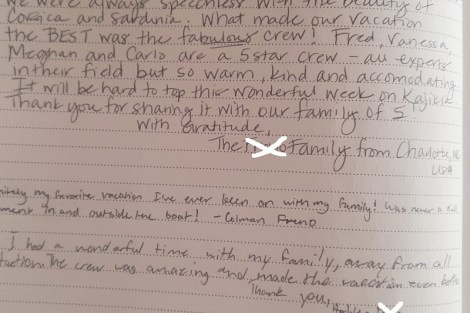 We were always speechless with the beauty of
Corsica and Sardinia. What made our vacation
the BEST was the fabulous crew! Fred, Vanessa,
Meghan and Carlo are a 5 star crew - all experts
in their field but so warm, kind and accomodating
It will be hard to top this wonderful week on
Thank you for sharing it with our family of 5.
With Gratitude,
The Family from Charlotte, NC
USA
my favorite vacation I've ever been on with my family! Was never a
ment in and outside the boat! - Colman
I had a wonderful time with my family, away from all
The crew was amazing and made the vacation even
Thank you,